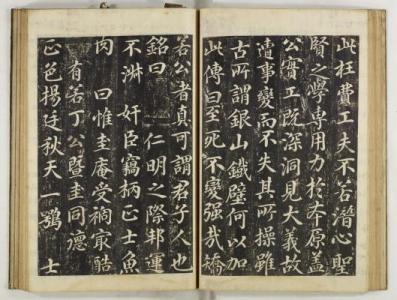 此枉費工夫不若潛心聖
賢之學專用力於本原蓋
公實工既深洞見大義故
遭事變而不失其所操雖
古所謂銀山鐵壁何以加
此傳曰至死不變强哉矯
若公者真可謂君子人也
銘曰 仁明之際邦運
不淑 奸臣竊柄正士魚
肉 曰惟圭庵受禍㝡酷
有若丁公曁圭同德
正色揚廷秋天一鶚 士